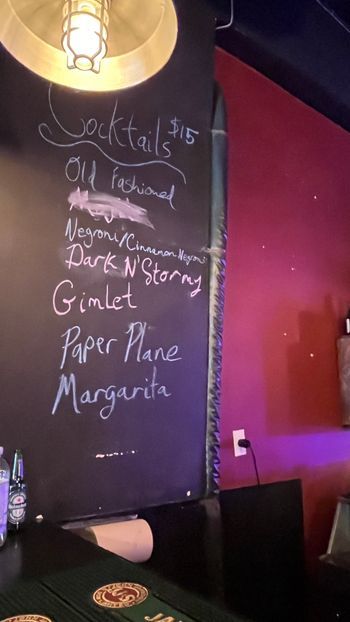 Cocktails $15
Old Fashioned
Negroni/Cinnamon Negroni
Dark N' Stormy
Gimlet
Paper Plane
Margarita